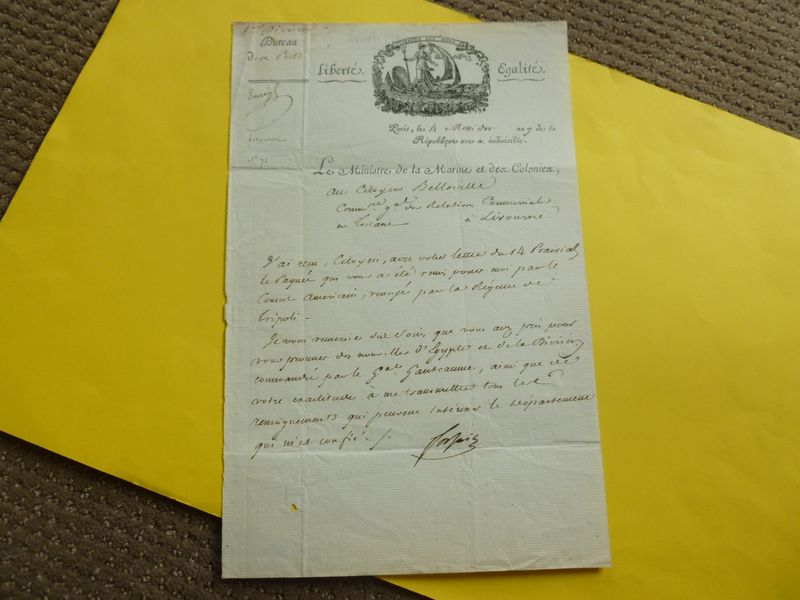 1ère Division
Bureau
des Ports
Liberté.
Egalité.
Livourne
N° 72
Paris, le 4 Messidor an 9 de la
République une et indivisible.
Le Ministre de la Marine et des Colonies,
Au Citoyen Belleville
Commre gal des Relations Commerciales
en Toscane à Livourne
J'ai reçu, Citoyen, avec votre lettre du 14 Prairial
le Paquet qui vous a été remis pour moi par le
Consul Américain, renvoyé par la Régence de
Tripoli.
Je vous remercie des soins que vous avez pris pour
vous procurer des nouvelles d'Egypte et de la Division
commandée par le Gral Ganteaume, ainsi que de
votre exactitude à me transmettre tous les
renseignements qui peuvent intéresser le Département
qui m'est confié.
Forfait